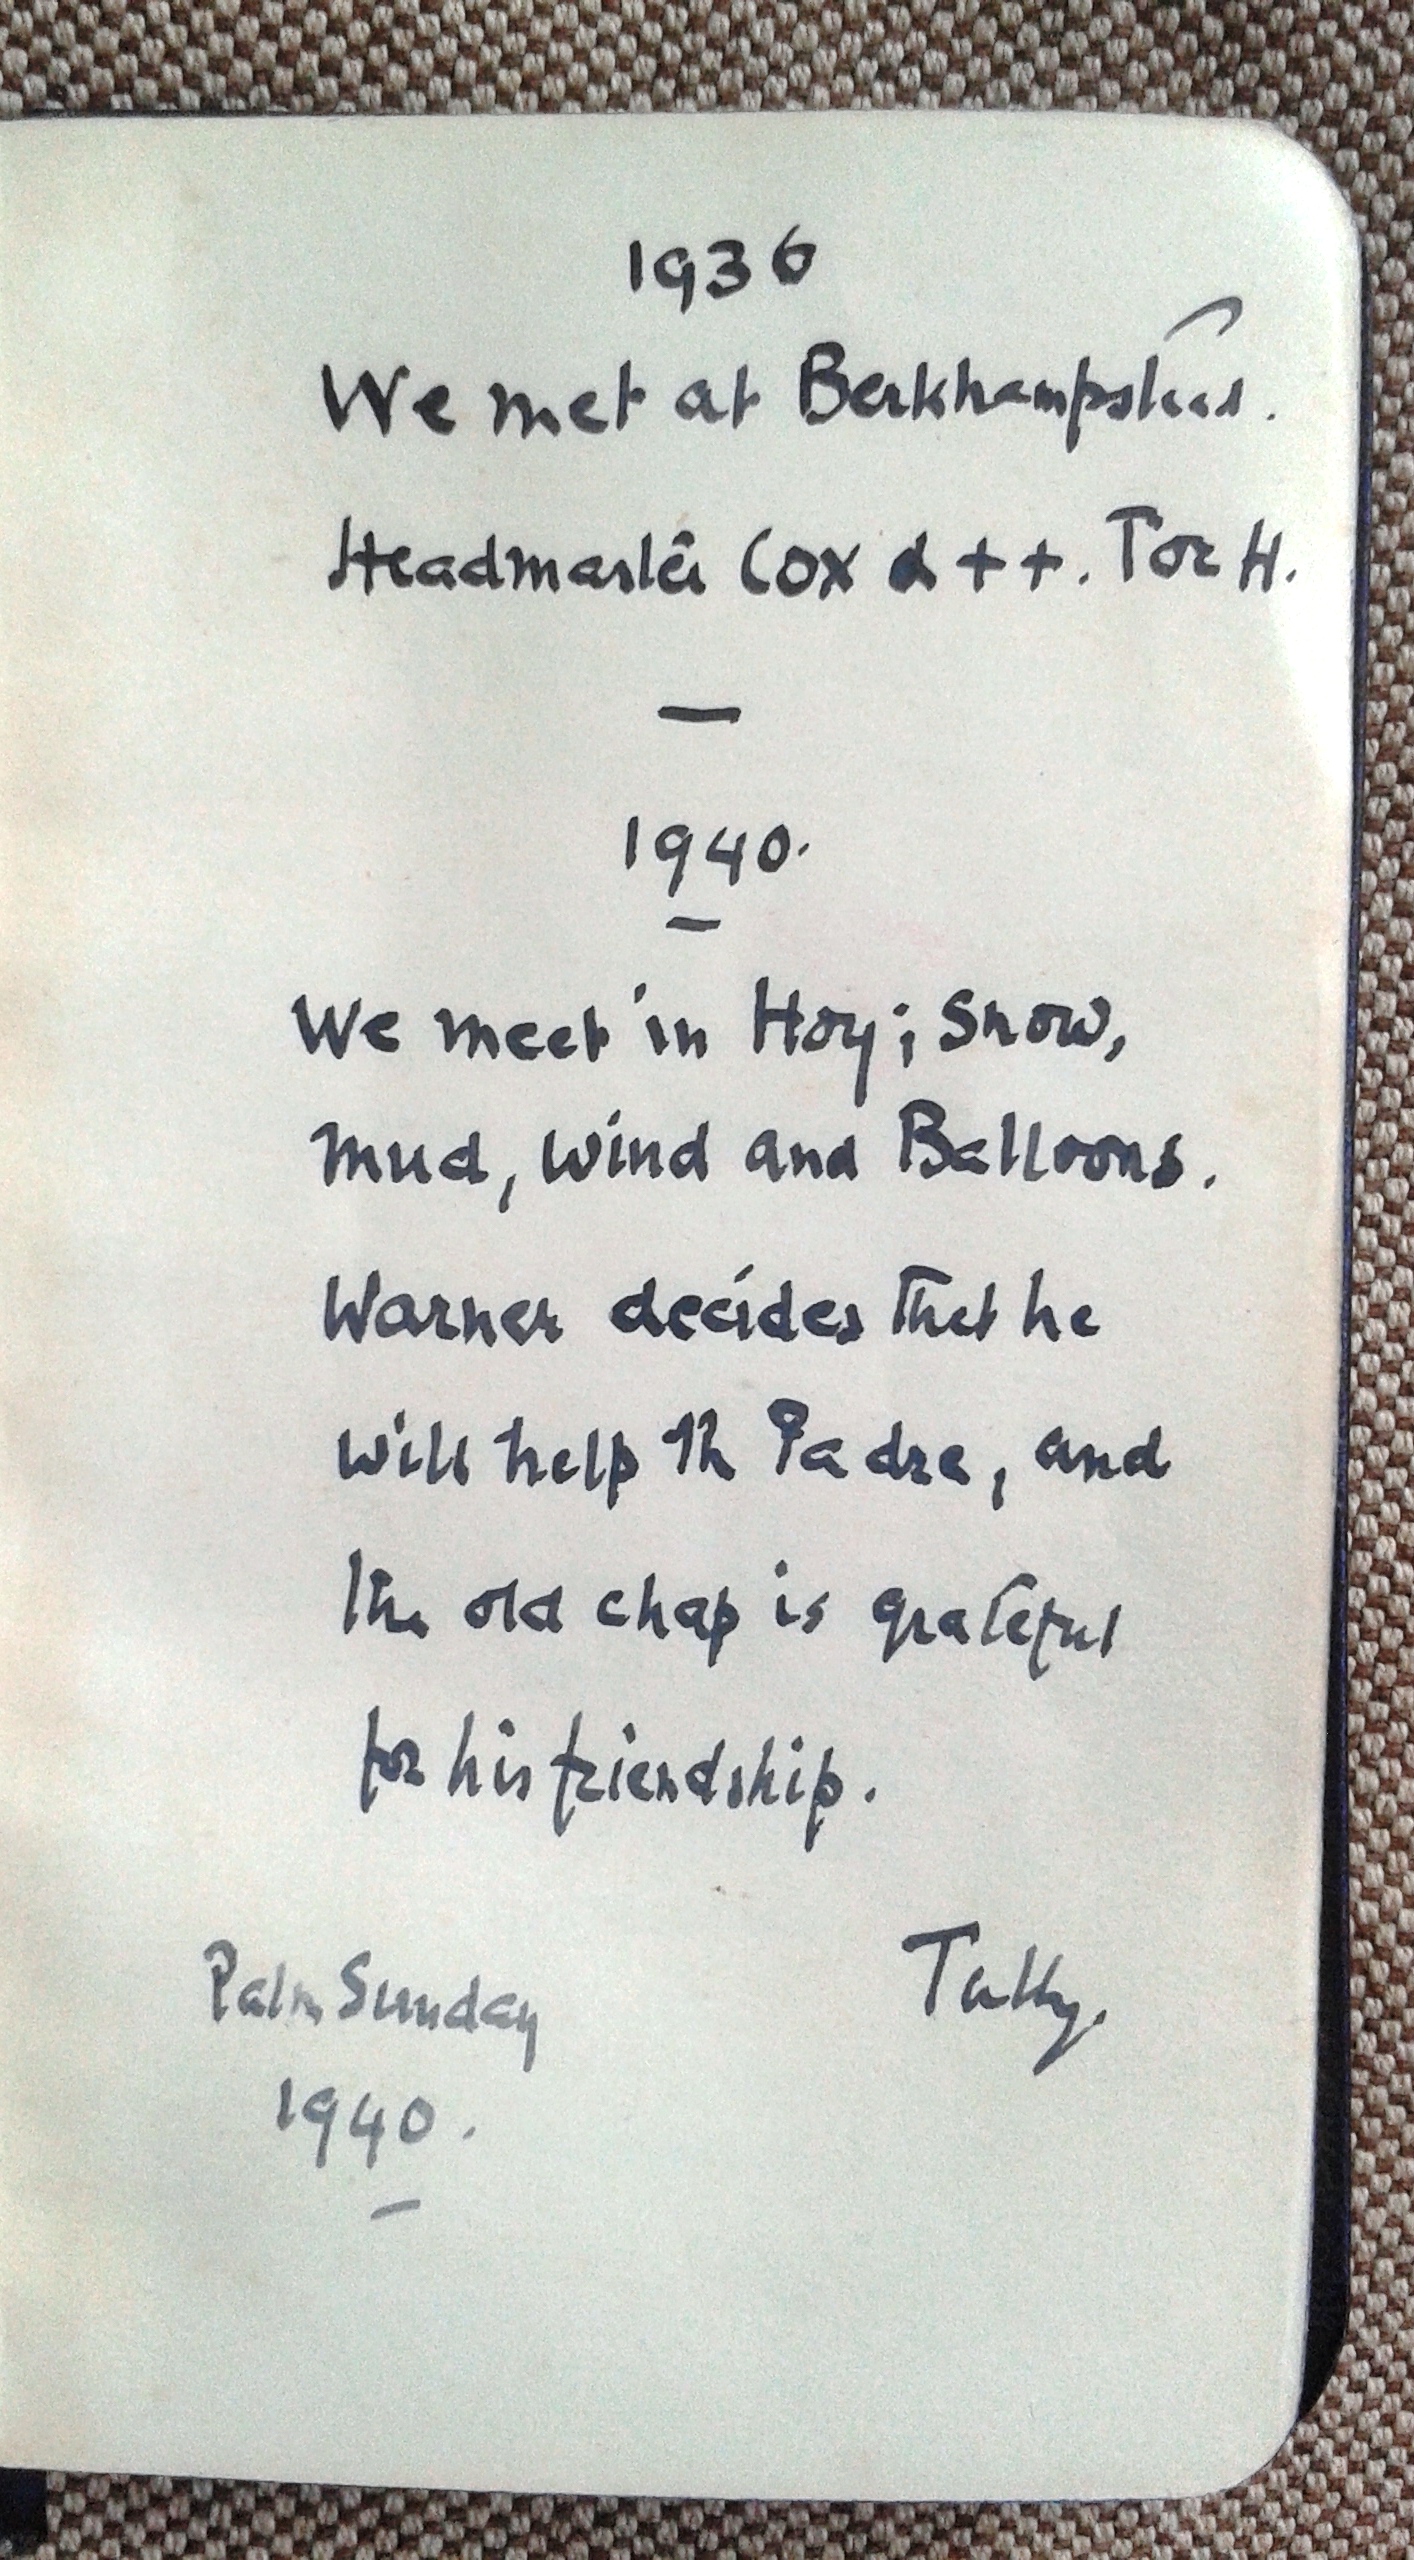 1936
We met at Berkhampstead.
Headmaster Cox α++. Toc H.
—
1940.
—
We meet in Hoy; Snow,
mud, wind and Balloons.
Warner decides that he
will help th Padre, and
the old chap is grateful
for his friendship.
Tubby.
Palm Sunday
1940.
—